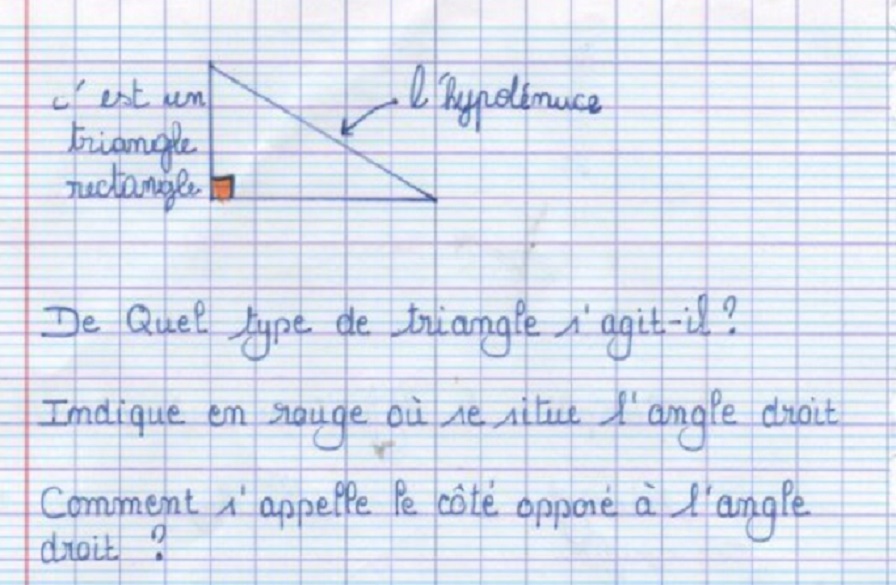 c'est un
triangle
rectangle
l'hypoténuce
De Quel type de triangle s'agit-il ?
Indique en rouge où se situe l'angle droit
Comment s'appelle le côté opposé à l'angle
droit ?